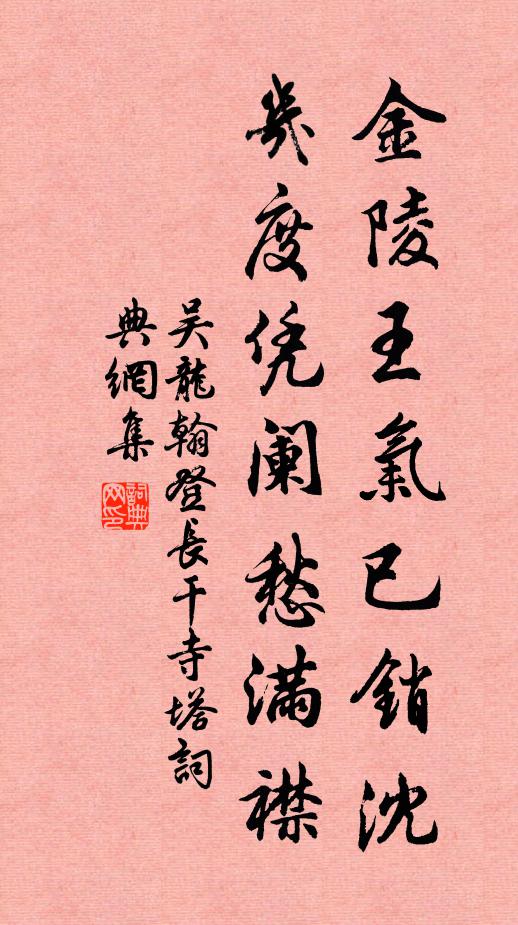 金陵王氣已銷沈
幾度凭闌愁滿襟
吳龍翰登長干寺塔詞
典網集
詞典網印